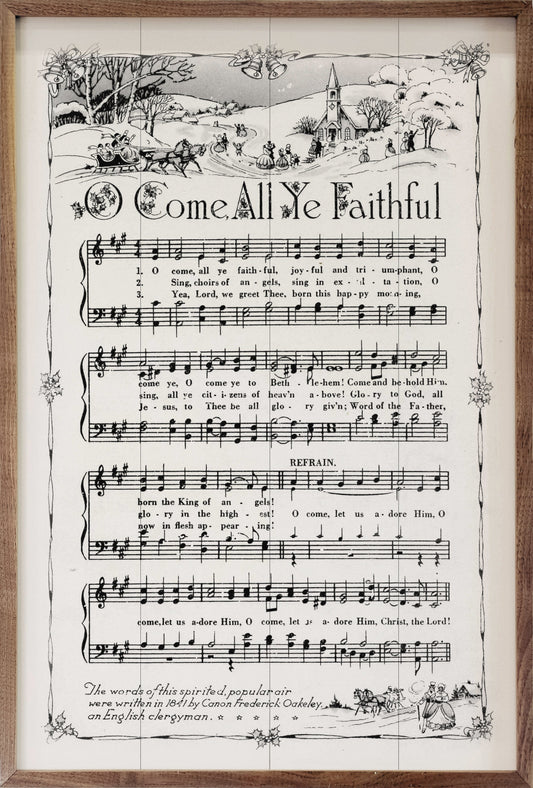 O Come All Ye Faithful
1. O come, all ye faith-ful, joy-ful and tri-um-phant, O
2. Sing, choirs of an-gels, sing in ex- -ta-tion, O
3. Yea, Lord, we greet Thee, born this hap-py morning,
come ye, O come ye to Beth-le-hem! Come and be-hold Him.
sing, all ye cit-i-zens of heav'n a-bove! Glo-ry to God, all
Je-sus, to Thee be all glo-ry giv'n; Word of the Fa-ther,
REFRAIN.
born the King of an-gels!
glo-ry in the high-est! O come, let us a-dore Him, O
now in flesh ap-pear-ing!
come, let us a-dore Him, O come, let us a-dore Him, Christ, the Lord!
The words of this spirited, popular air
were written in 1841 by Canon Frederick Oakeley,
an English clergyman. ☆ ☆ ☆ ☆ ☆